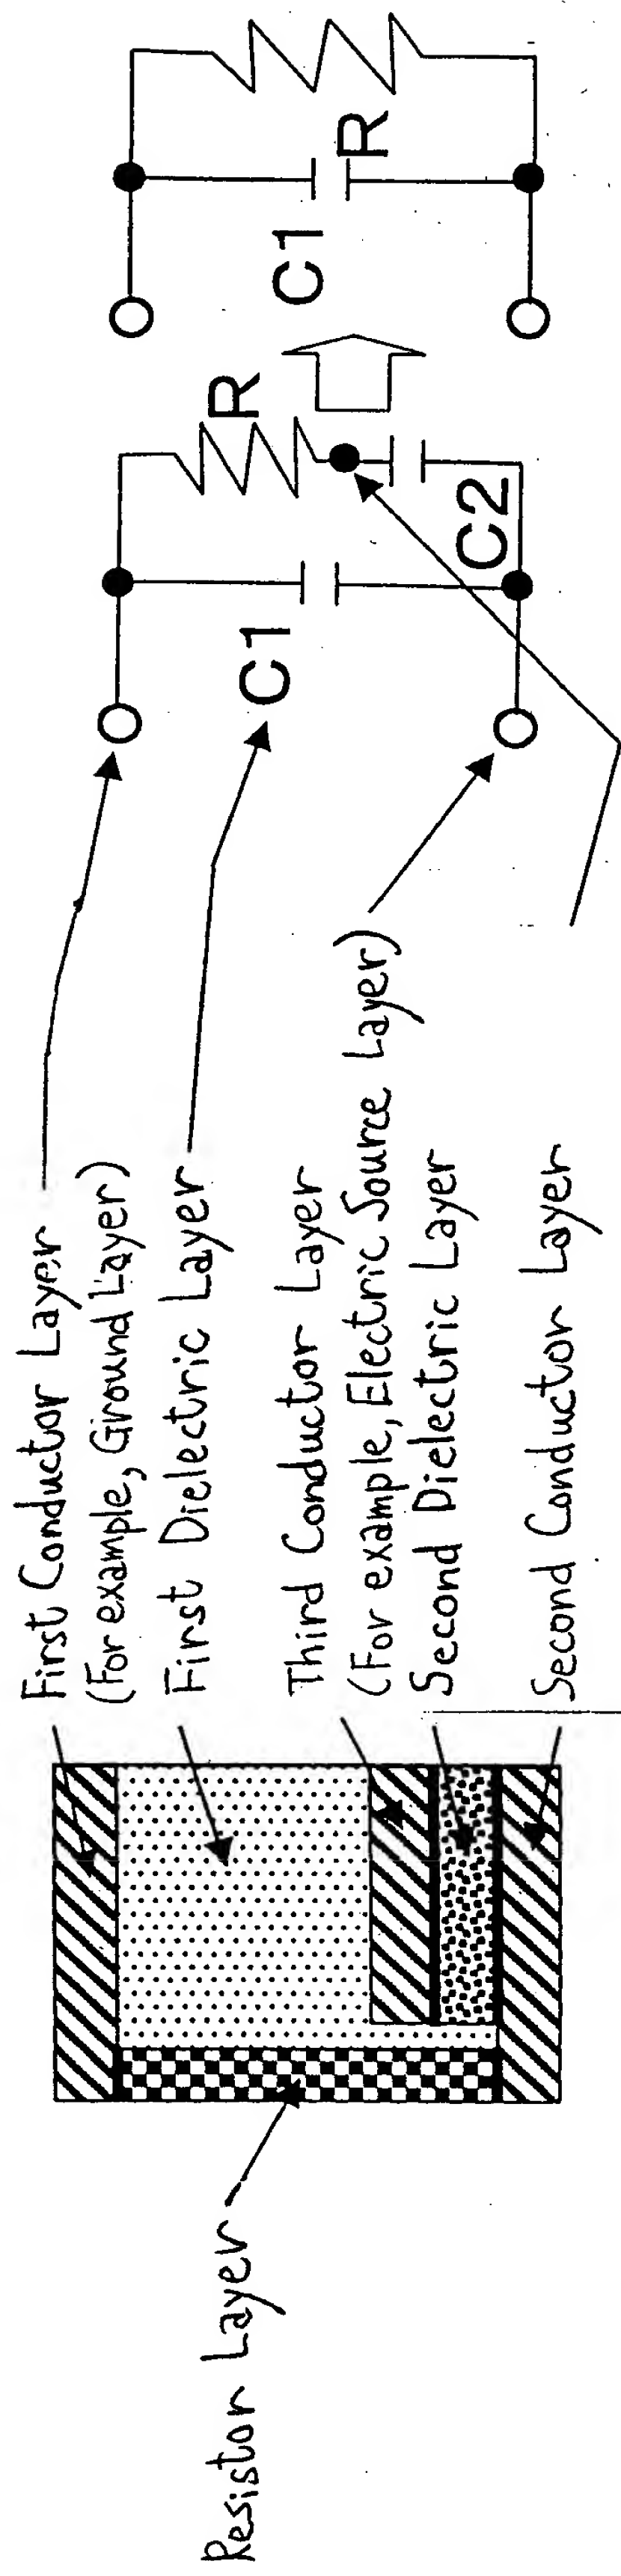 First Conductor Layer
(For example, Ground Layer)
First Dielectric Layer
Third Conductor Layer
(For example, Electric Source Layer)
Second Dielectric Layer
Second Conductor Layer
Resistor Layer
C1
R
C2
C1
R